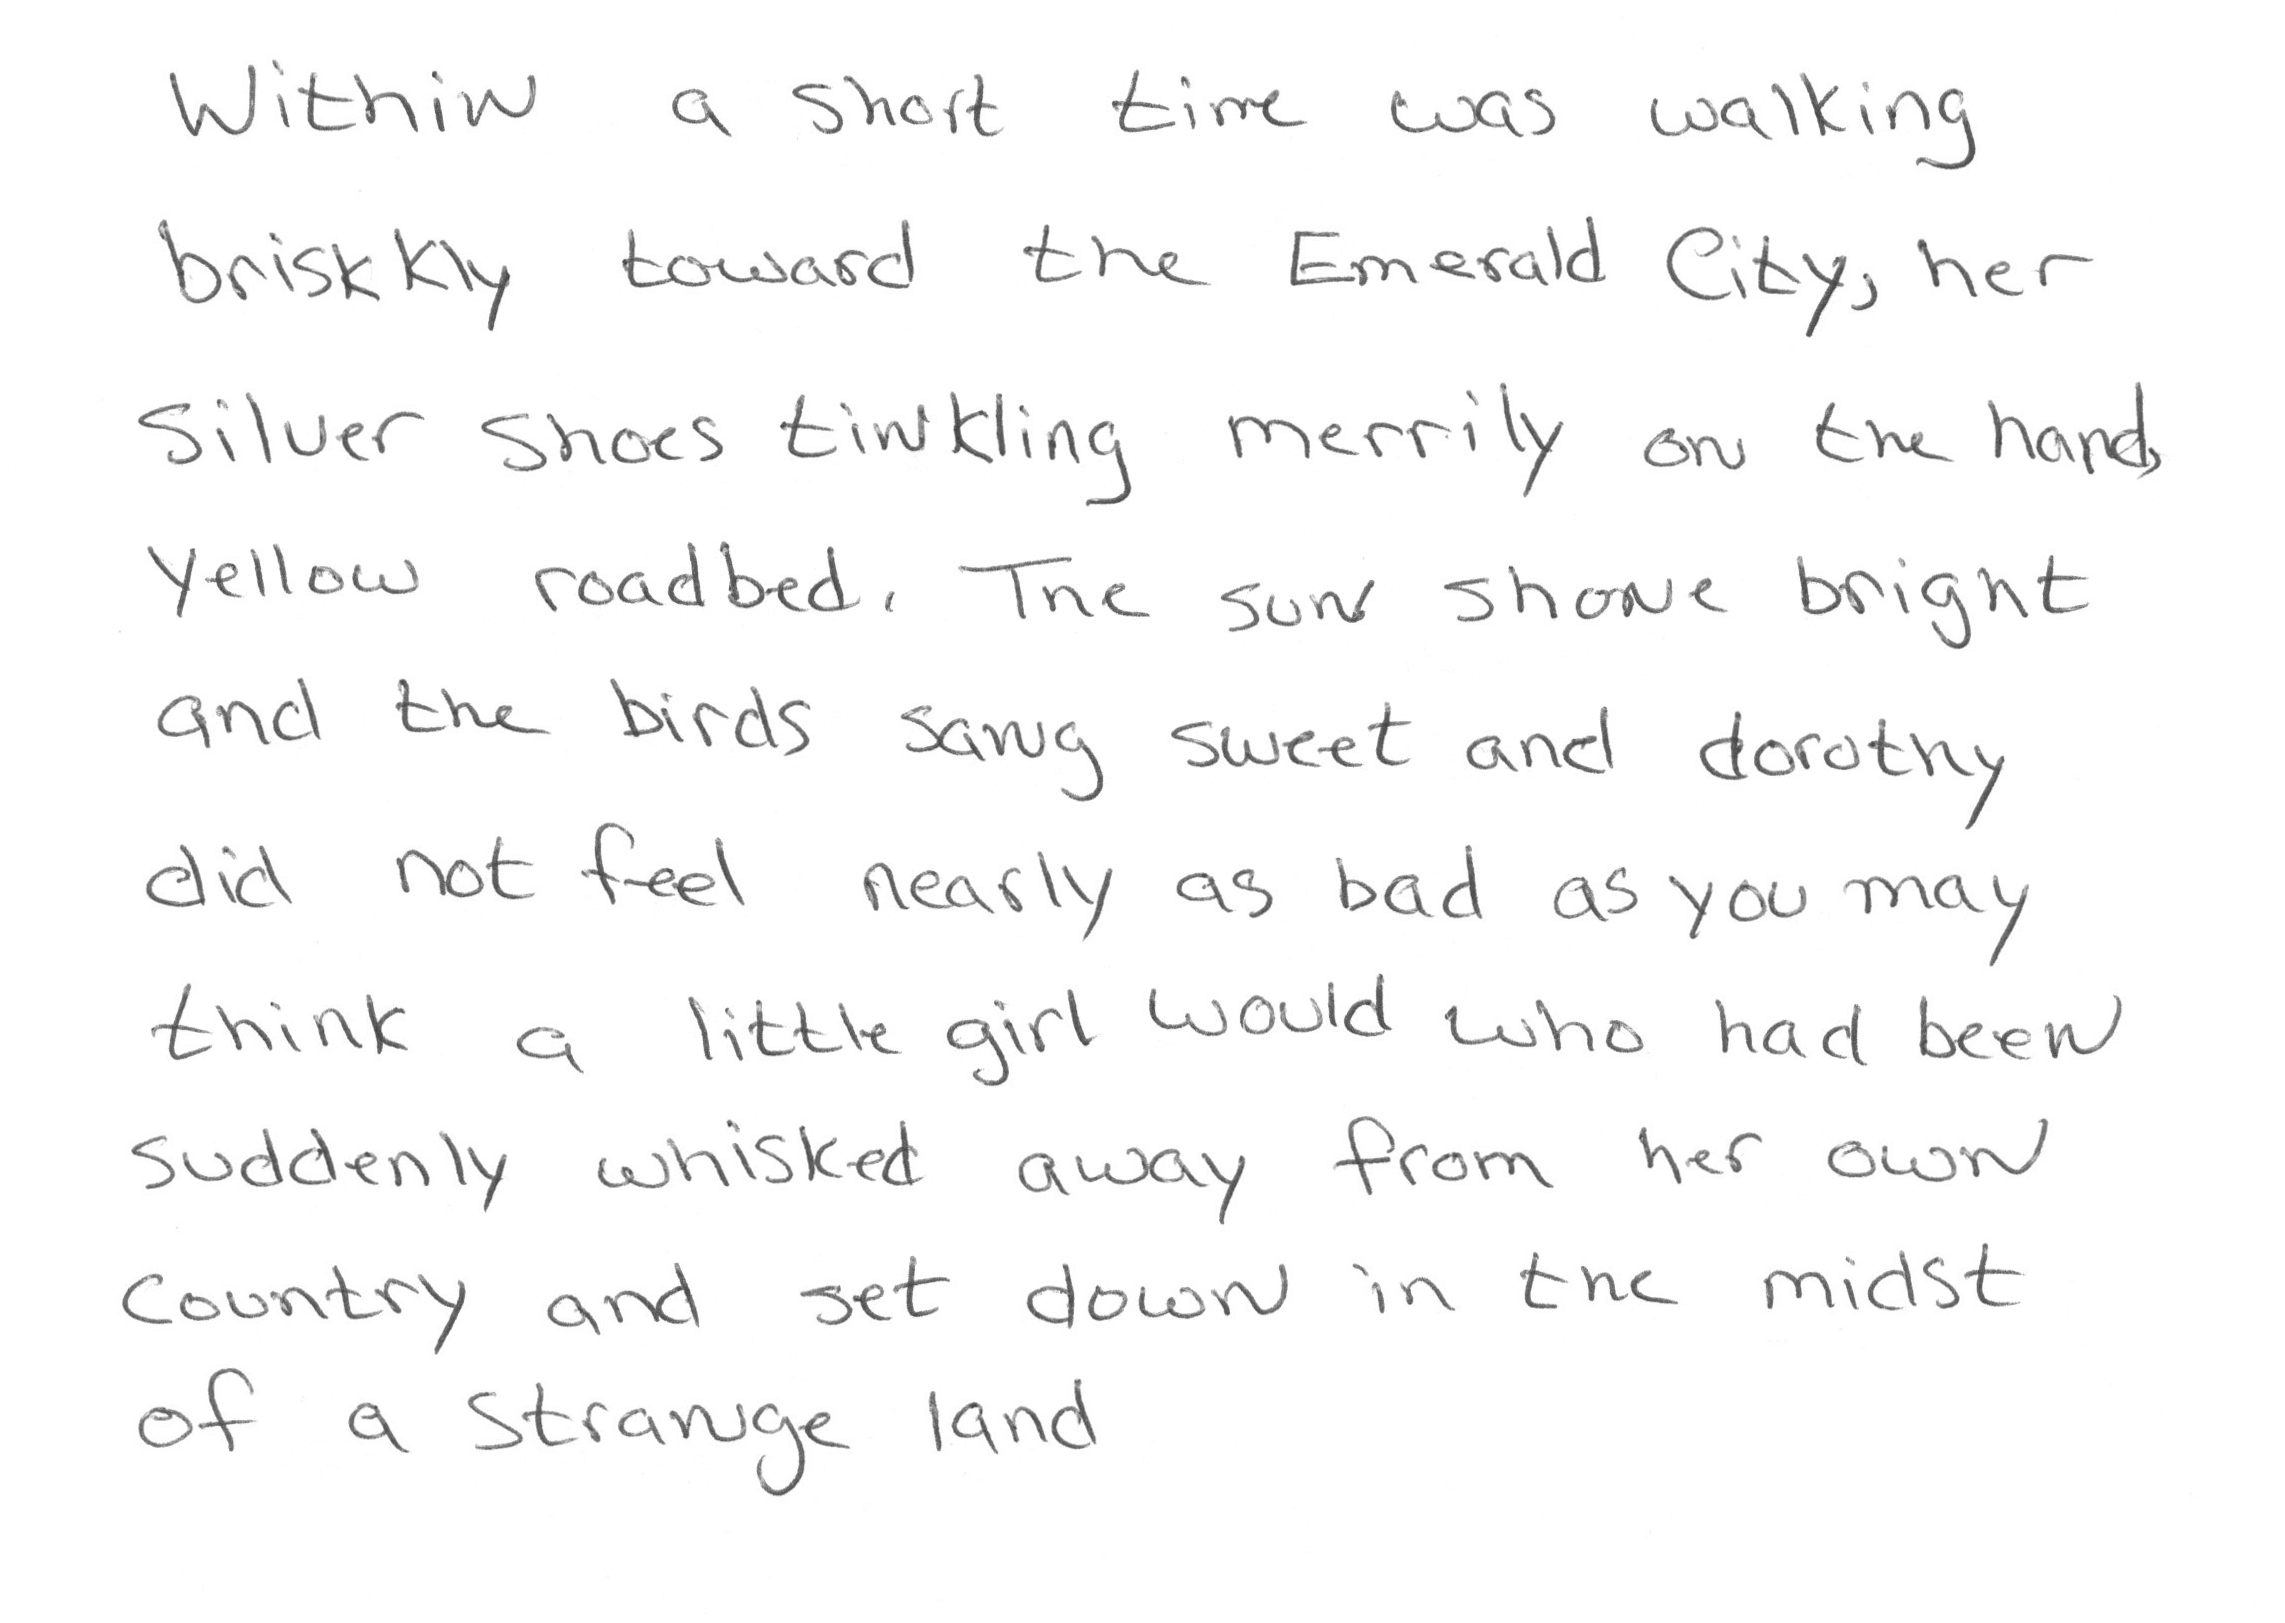 Within a short time was walking
briskkly toward the Emerald City, her
Silver Shoes tinkling merrily on the hand,
yellow roadbed. The sun shone bright
and the birds sang sweet and dorothy
did not feel nearly as bad as you may
think a little girl would who had been
suddenly whisked away from her own
country and set down in the midst
of a strange land